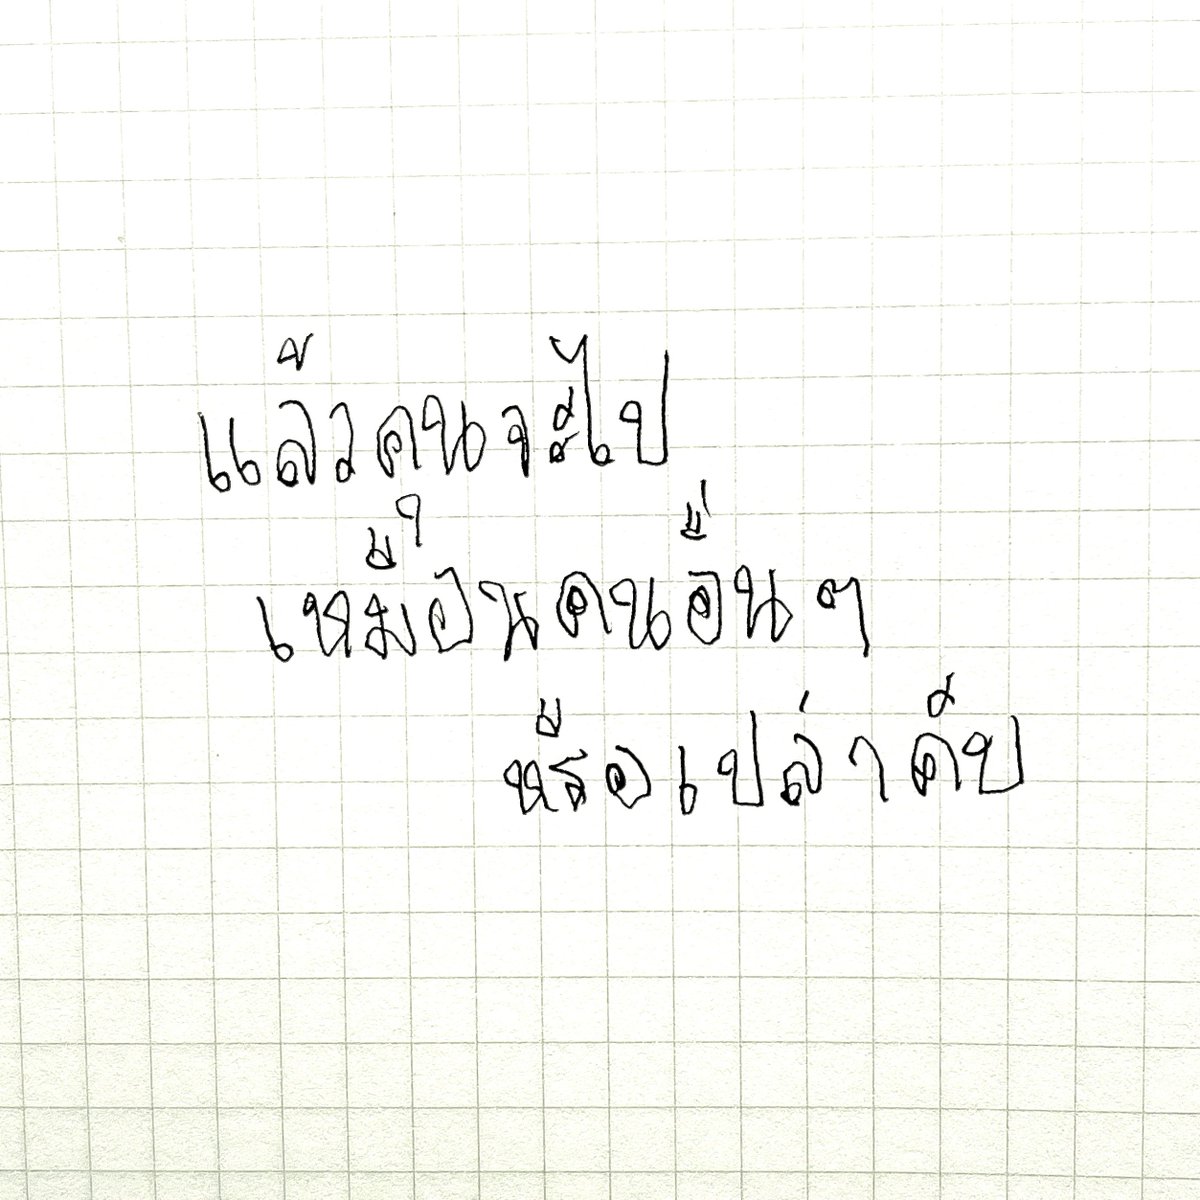 แล้วคนจะไป
เหมือนคนอื่น ๆ
หรือเปล่าคับ